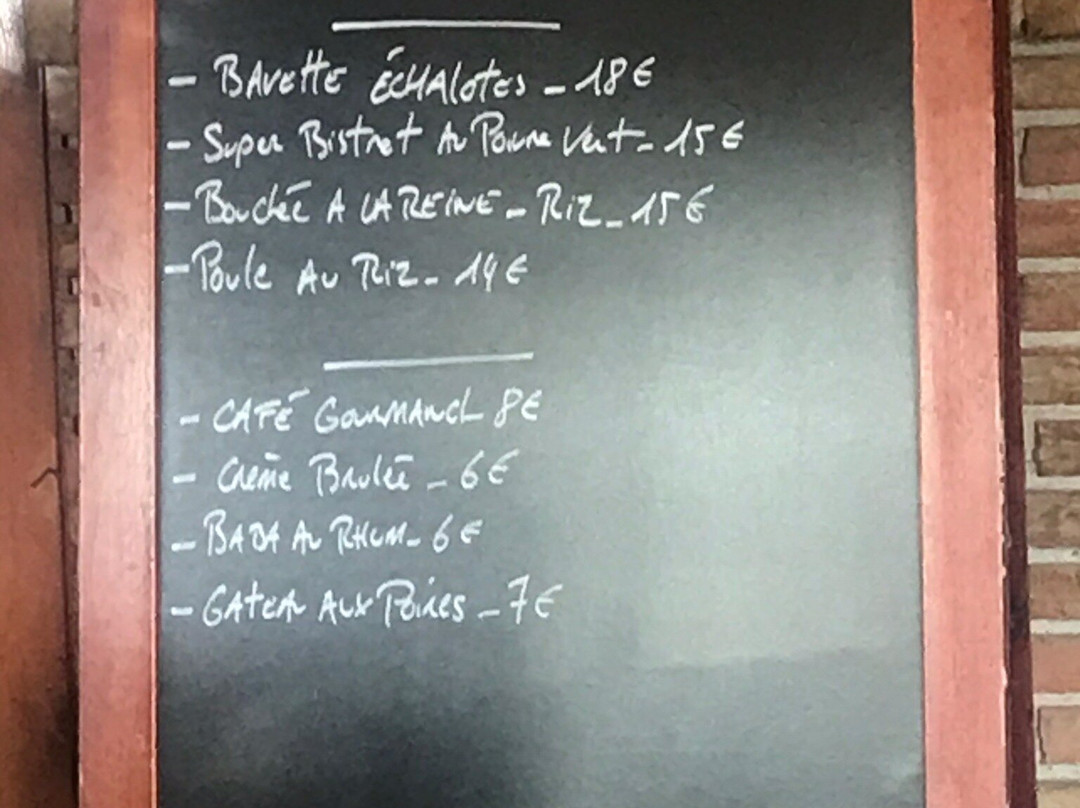 - BAVETTE ÉCHALOTES - 18€
- SUPER BISTROT AU POIVRE VERT - 15€
- BOUCHÉE A LA REINE - RIZ - 15€
- POULE AU RIZ - 14€
- CAFÉ GOURMAND 8€
- CRÈME BRULÉE - 6€
- BABA AU RHUM - 6€
- GATEAU AUX POIRES - 7€